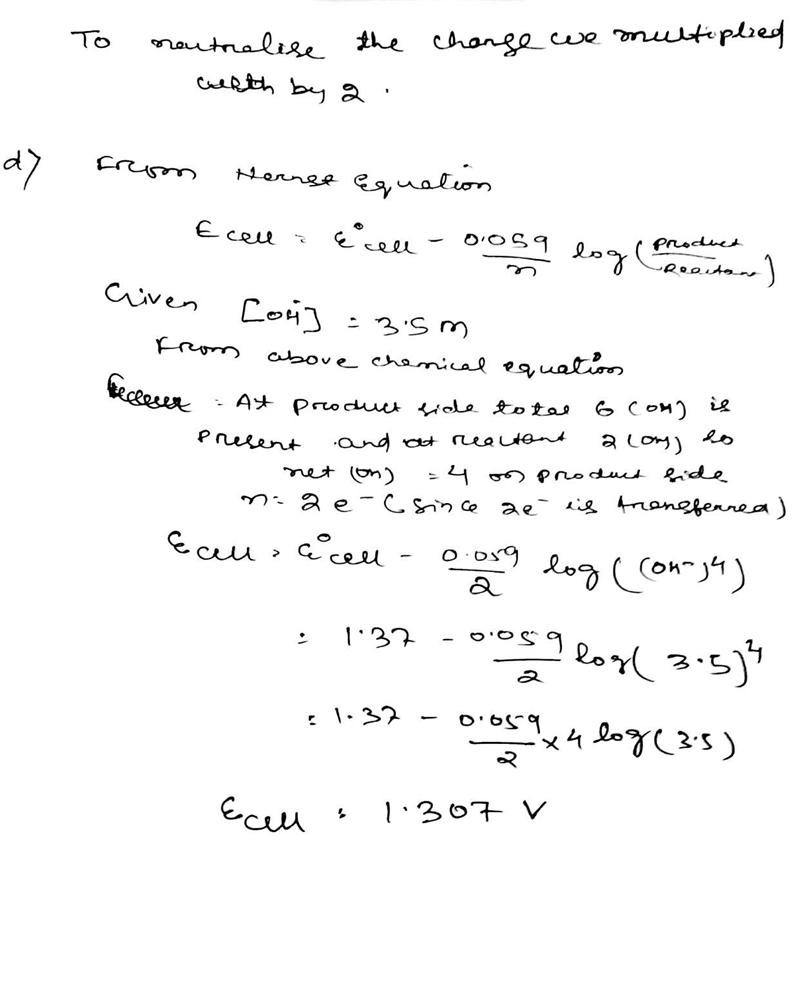 To neutralise the charge we multiplied
with by 2.
d) From Nernst Equation
Ecell = E°cell - 0.059/n log (Product/Reactan)
Given [OH] = 3.5 m
From above chemical equation
= At product side total 6 (OH) is
present and at reactant 2(OH) so
net (OH) = 4 on product side
n = 2e⁻ (since 2e⁻ is transferred)
Ecell = E°cell - 0.059/2 log ((OH⁻)4)
= 1.37 - 0.059/2 log (3.5)⁴
= 1.37 - 0.059/2 × 4 log (3.5)
Ecell = 1.307 V